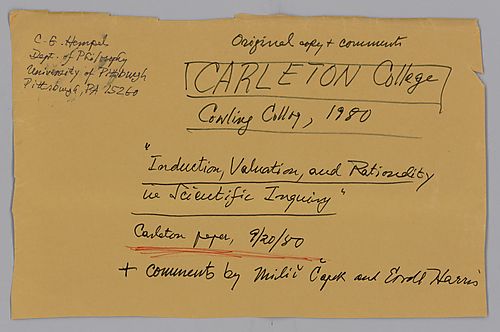 C-G. Hempel
Dept. of Philosophy
University of Pittsburgh
Pittsburgh, PA 15260
Original copy + comments
CARLETON College
Cowling Colloq, 1980
"Induction, Valuation, and Rationality
in Scientific Inquiry"
Carleton paper, 9/20/80
+ comments by Milič Čapek and Errol Harris